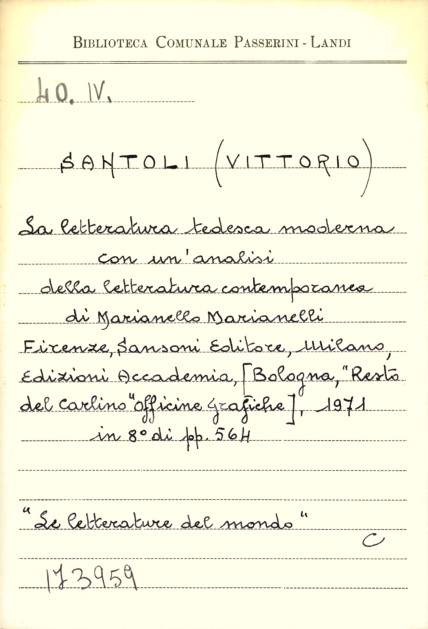 BIBLIOTECA COMUNALE PASSERINI - LANDI
40. IV.
SANTOLI (VITTORIO)
La letteratura tedesca moderna
con un'analisi
della letteratura contemporanea
di Marianello Marianelli
Firenze, Sansoni Editore, Milano,
Edizioni Accademia, [Bologna, "Resto
del Carlino" Officine Grafiche], 1971
in 8° di pp. 564
"Le letterature del mondo"
C
173959